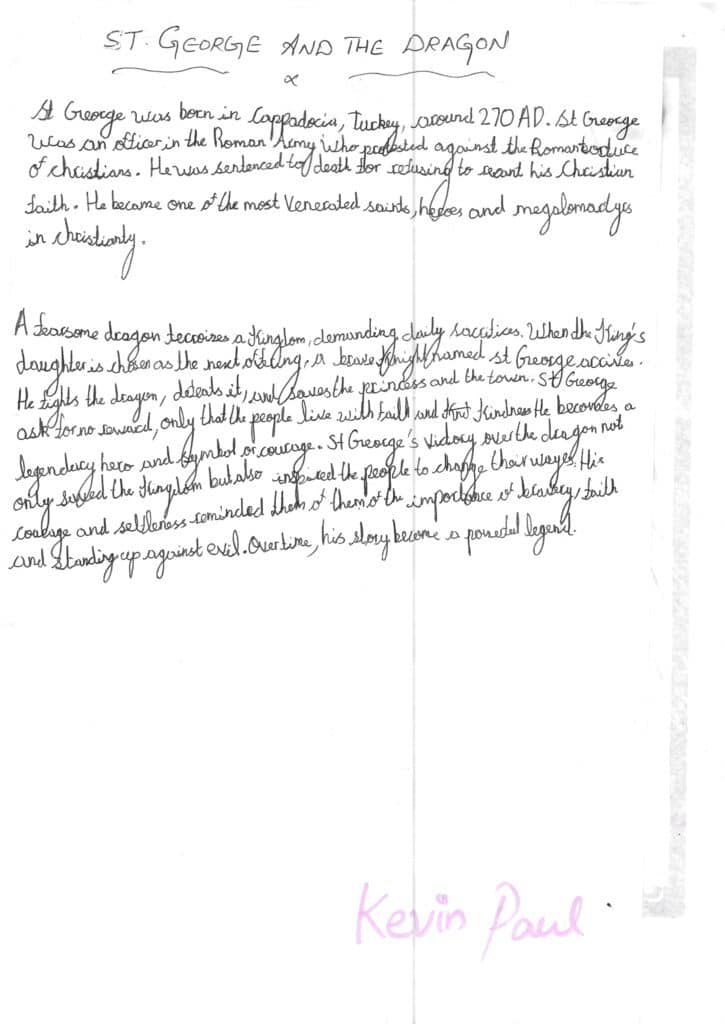 ST. GEORGE AND THE DRAGON
St George was born in Cappadocia, Turkey, around 270 AD. St George
was an officer in the Roman Army who protested against the Roman torture
of christians. He was sentenced to death for refusing to recant his Christian
faith. He became one of the most Venerated saints, heroes and megalomartyrs
in christianty.
A fearsome dragon terroizes a Kingdom, demanding daily sacrifices. When the King's
daughter is chosen as the next offering, a brave Knight named st George arrives.
He fights the dragon, defeats it, and saves the princess and the town. St George
ask for no reward, only that the people live with faith and Kindness He becomes a
legendary hero and symbol of courage. St George's victory over the dragon not
only saved the Kingdom but also inspired the people to change their wayes. His
courage and selfleness reminded them of them of the importance of bravery, faith
and standing up against evil. Overtime, his story become a powerful legend.
Kevin Paul